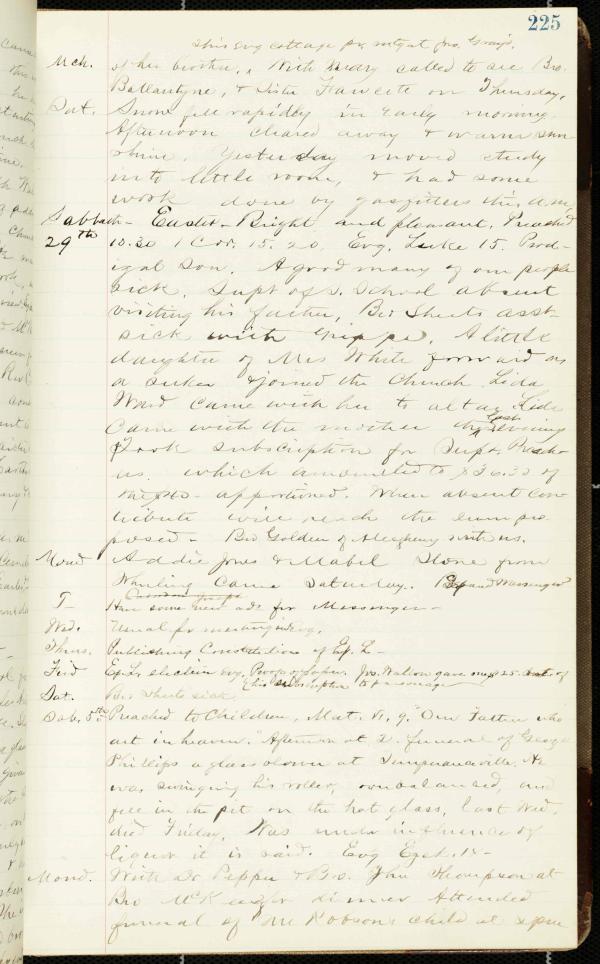 225
This Evg cottage pr mtg at Jno. Gray's.
Mch. & her brother, With Mary called to see Bro.
Ballantyne, & Sister Fawcett on Thursday.
Sat. Snow fell rapidly in early morning.
Afternoon cleared away & warm sun
shine. Yesterday moved study
into little room, & had some
work done by gasfitters this a.m.
Sabbath - Easter - Bright and pleasant. Preached
29th 10.30 1 Cor. 15. 20. Evg. Luke 15. Prod-
igal Son. A good many of our people
sick. Supt of S. School absent
visiting his father, Bro Sheets asst
sick with Grippe. A little
daughter of Mrs White forward as
a seeker & joined the Church. Lida
Ward came with her to altar. Lida
came with the mother last evening
Took subscription for Preach-
ers which amounted to $36.30 of
apportioned. When absent con-
tribute will reach the sum pro-
posed - Bro Golden of Allegheny with us.
Mond Addie Jones & Mabel Stone from
came Saturday. Messenger
T- Have some new ads for Messenger -
Wed. Usual pr meeting in Evg.
Thurs. Publishing Constitution of Ep. L -
Frid Ep. L. election Evg. Proof of paper. Jno. Watson gave me $25 of
his subscription to parsonage
Sat. Bro Sheets sick.
Sab. 5th Preached to Children, Mat. VI, 9. "Our Father who
art in heaven." Afternoon at 2. funeral of George
Phillips a glassblower at Temperanceville. He
was swinging his roller, overbalanced, and
fell in the pit on the hot glass, last Wed.
died Friday. Was under influence of
liquor it is said. Evg Ezek.
Mond. With Dr Pepper & Bro. Jno Thompson at
Bro McKee for dinner Attended
funeral of Mr Robson's child at 2 pm